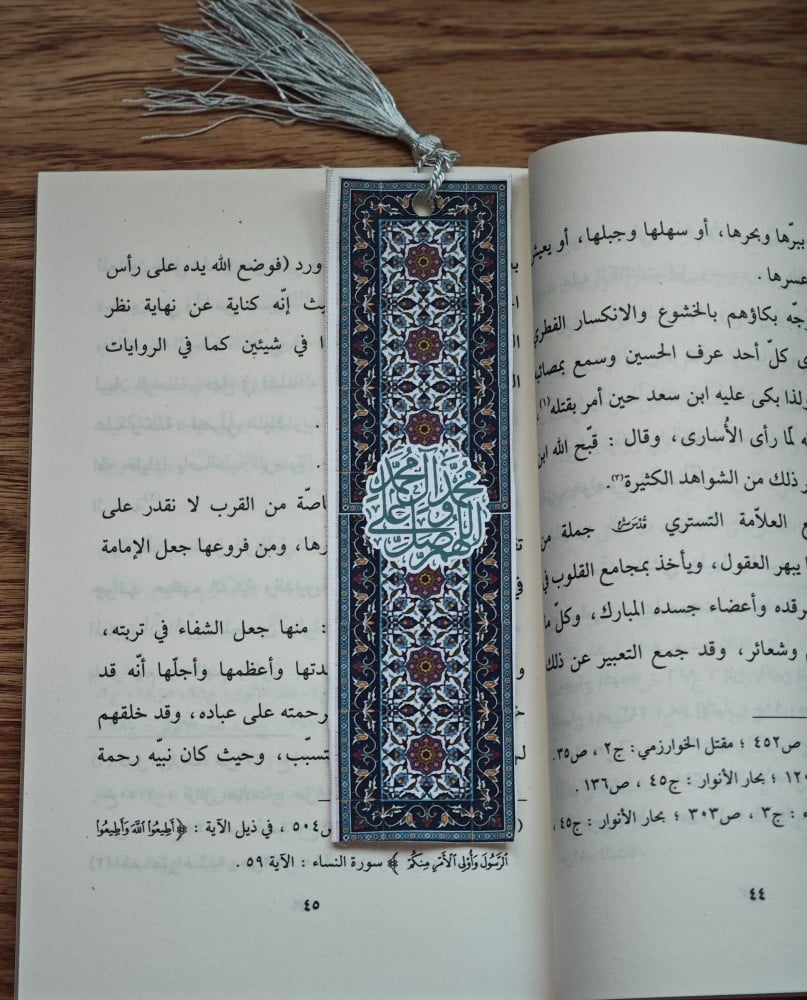 ببرّها وبحرها، أو سهلها وجبلها، أو يعيش
عسرها .
جّه بكاؤهم بالخشوع والانكسار الفطري
ى كلّ أحد عرف الحسين وسمع بمصائبه
ولذا بكى عليه ابن سعد حين أمر بقتله(١)،
ه لمّا رأى الأُسارى، وقال : قبّح الله ابن
ر ذلك من الشواهد الكثيرة(٣).
ع العلاّمة التستري جملة من
ا يبهر العقول، ويأخذ بمجامع القلوب في
رقده وأعضاء جسده المبارك، وكلّ ما
وشعائر، وقد جمع التعبير عن ذلك
ص٤٥٢ ؛ مقتل الخوارزمي: ج٢ ، ص٣٥.
؛ بحار الأنوار : ج٤٥ ، ص١٣٦ .
: ج٣ ، ص٣٠٣ ؛ بحار الأنوار: ج٤٥،
٤٤
ورد (فوضع الله يده على رأس
يث إنّه كناية عن نهاية نظر
ا في شيئين كما في الروايات
اصّة من القرب لا نقدر على
رها، ومن فروعها جعل الإمامة
في
: منها جعل الشفاء في تربته،
دتها وأعظمها وأجلّها أنّه قد
رحمته على عباده، وقد خلقهم
تسبّب، وحيث كان نبيّه رحمة
ص٥٠٤ ، في ذيل الآية : ﴿أَطِيعُوا اللَّهَ وَأَطِيعُوا
الرَّسُولَ وَأُولِي الْأَمْرِ مِنكُمْ﴾ سورة النساء : الآية ٥٩ .
٤٥
اللهم صل على محمد وآل محمد